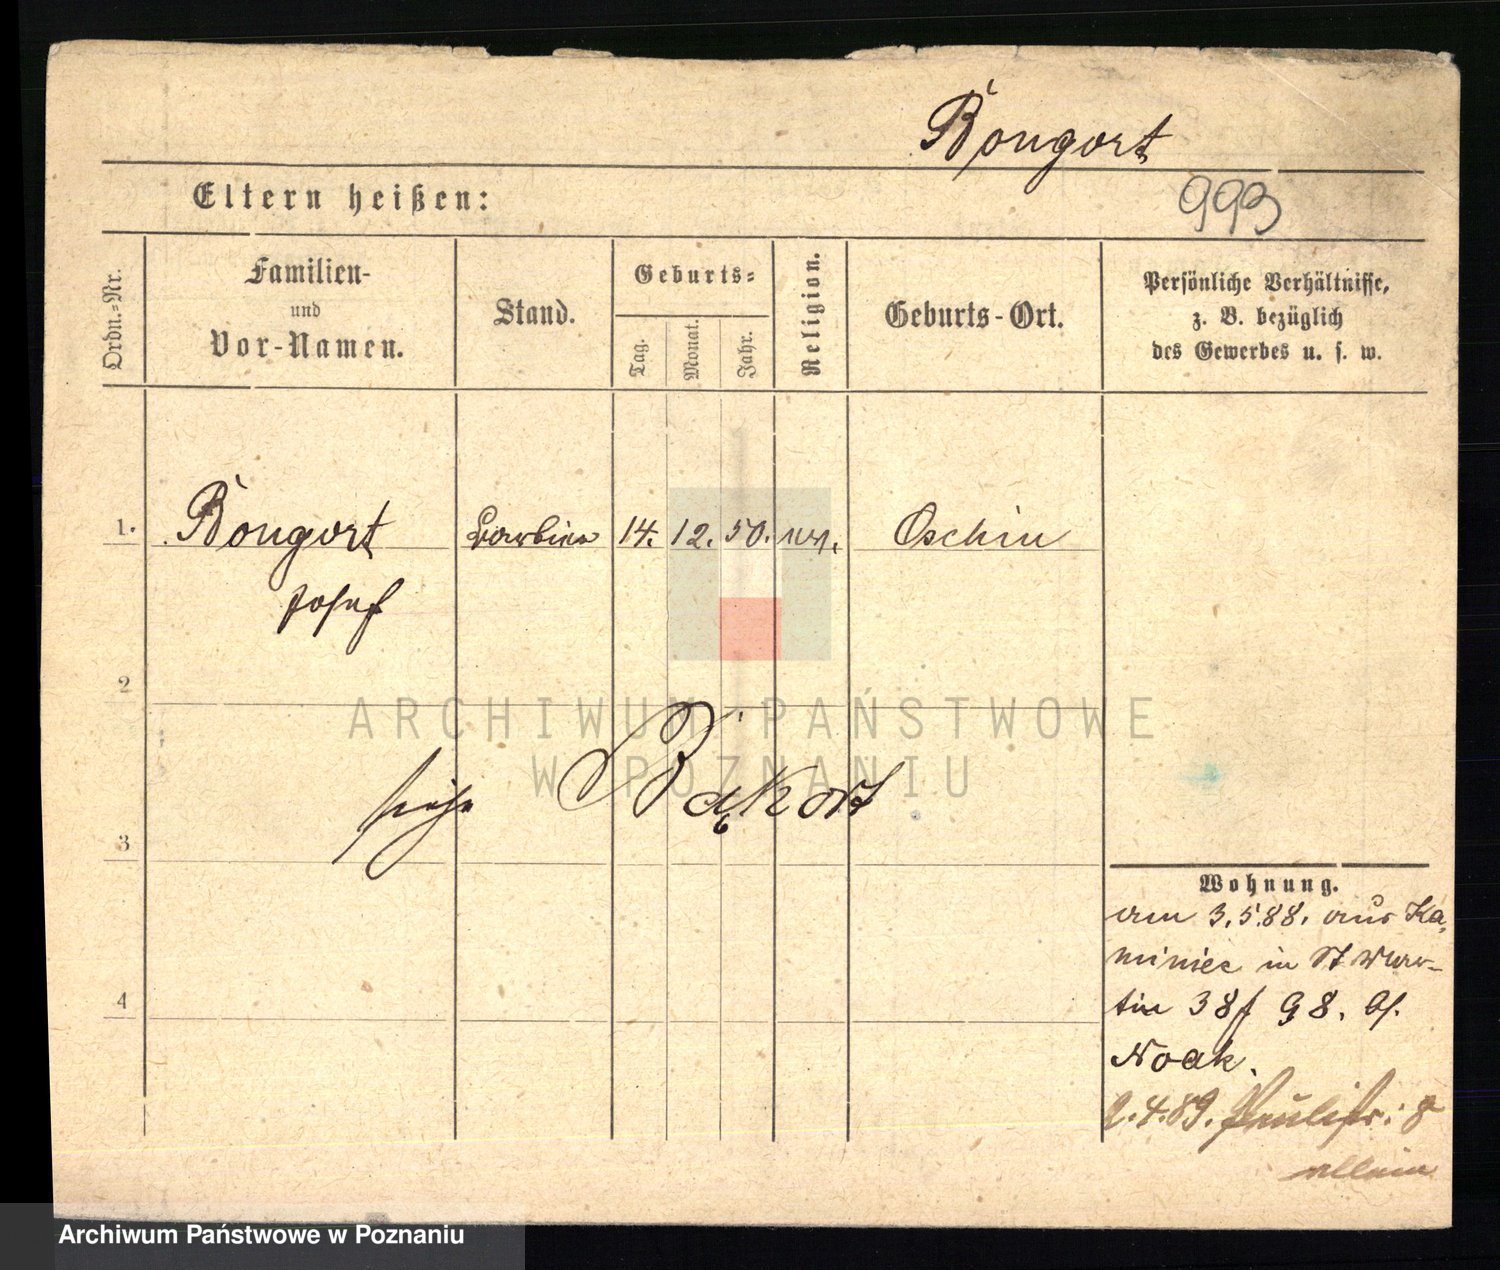 Bongort
Eltern heißen:
993
Ordn.-Nr.
Familien-
und
Vor-Namen.
Stand.
Geburts-
Tag.
Monat.
Jahr.
Religion.
Geburts-Ort.
Persönliche Verhältnisse,
z. B. bezüglich
des Gewerbes u. s. w.
1. Bongort Barbier 14. 12. 50. Oschin
Josef
2
ARCHIWUM PAŃSTWOWE
W POZNANIU
siehe Bąkort
3
Wohnung.
am 3.5.88. aus Ka-
miniec in St Mar-
tin 38 f G 8. b/.
Noak.
2.4.89. Paulistr. 8
allein
4
Archiwum Państwowe w Poznaniu